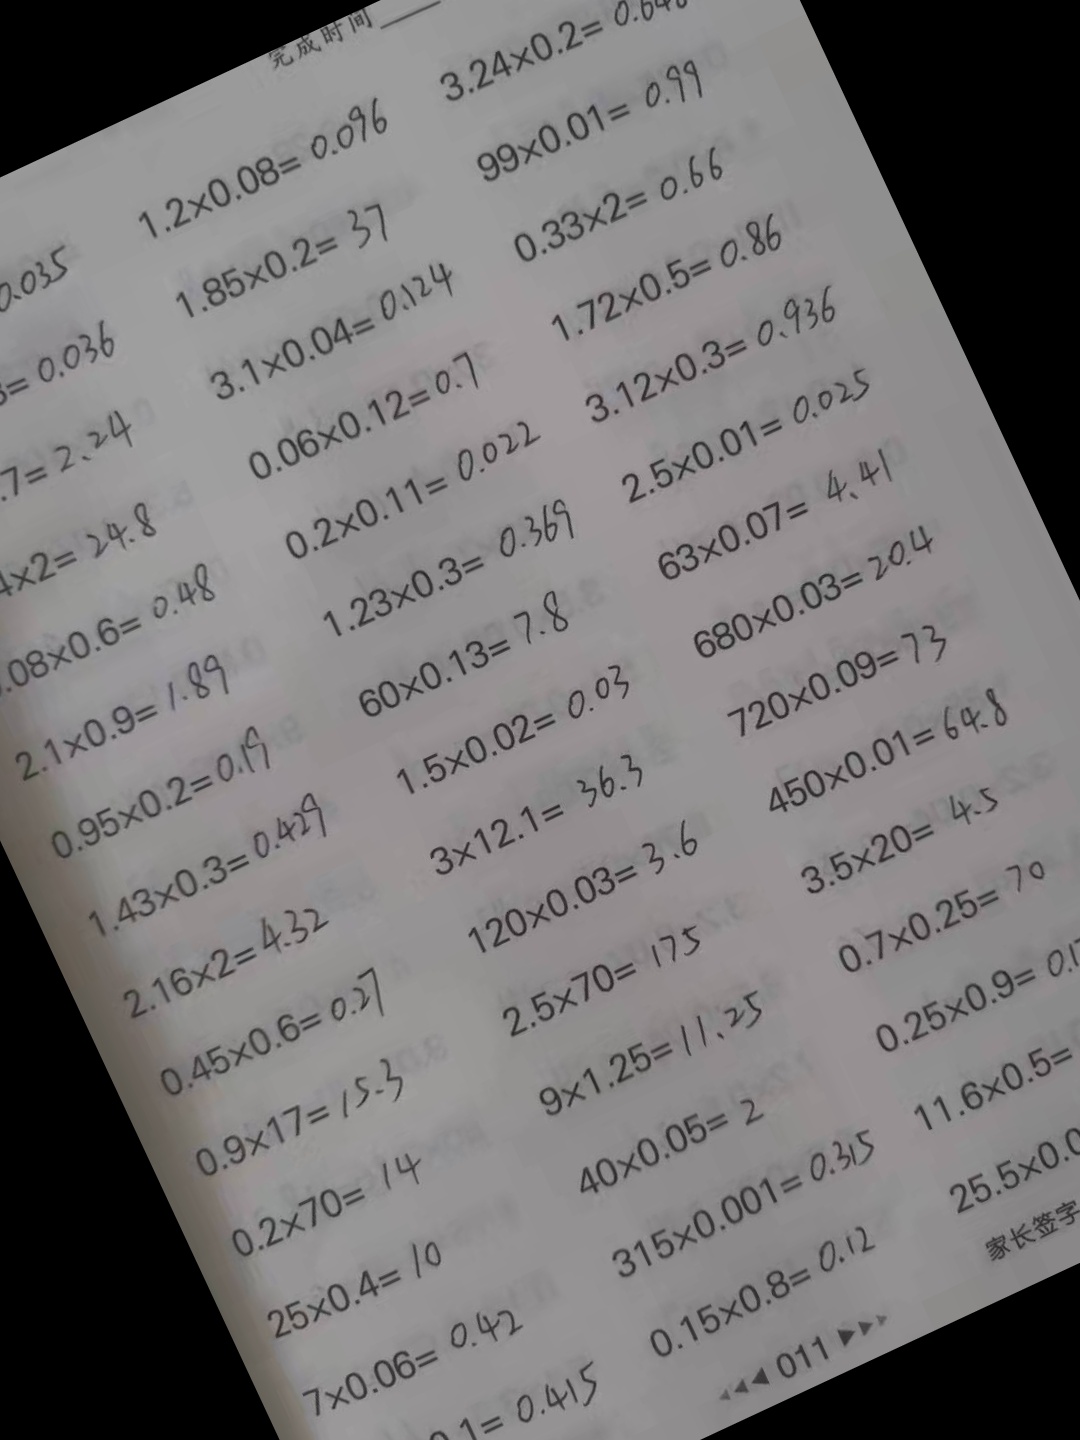 完成时间
0.035
3= 0.036
.7= 2.24
4×2= 24.8
.08×0.6= 0.48
2.1×0.9= 1.89
0.95×0.2= 0.19
1.43×0.3= 0.429
2.16×2= 4.32
0.45×0.6= 0.27
0.9×17= 15.3
0.2×70= 14
25×0.4= 10
7×0.06= 0.42
0.1= 0.415
1.2×0.08= 0.096
1.85×0.2= 37
3.1×0.04= 0.124
0.06×0.12= 0.7
0.2×0.11= 0.022
1.23×0.3= 0.369
60×0.13= 7.8
1.5×0.02= 0.03
3×12.1= 36.3
120×0.03= 3.6
2.5×70= 175
9×1.25= 11.25
40×0.05= 2
315×0.001= 0.315
0.15×0.8= 0.12
3.24×0.2= 0.648
99×0.01= 0.99
0.33×2= 0.66
1.72×0.5= 0.86
3.12×0.3= 0.936
2.5×0.01= 0.025
63×0.07= 4.41
680×0.03= 20.4
720×0.09= 73
450×0.01= 64.8
3.5×20= 4.5
0.7×0.25= 70
0.25×0.9= 0.1
11.6×0.5=
25.5×0.0
家长签字
011